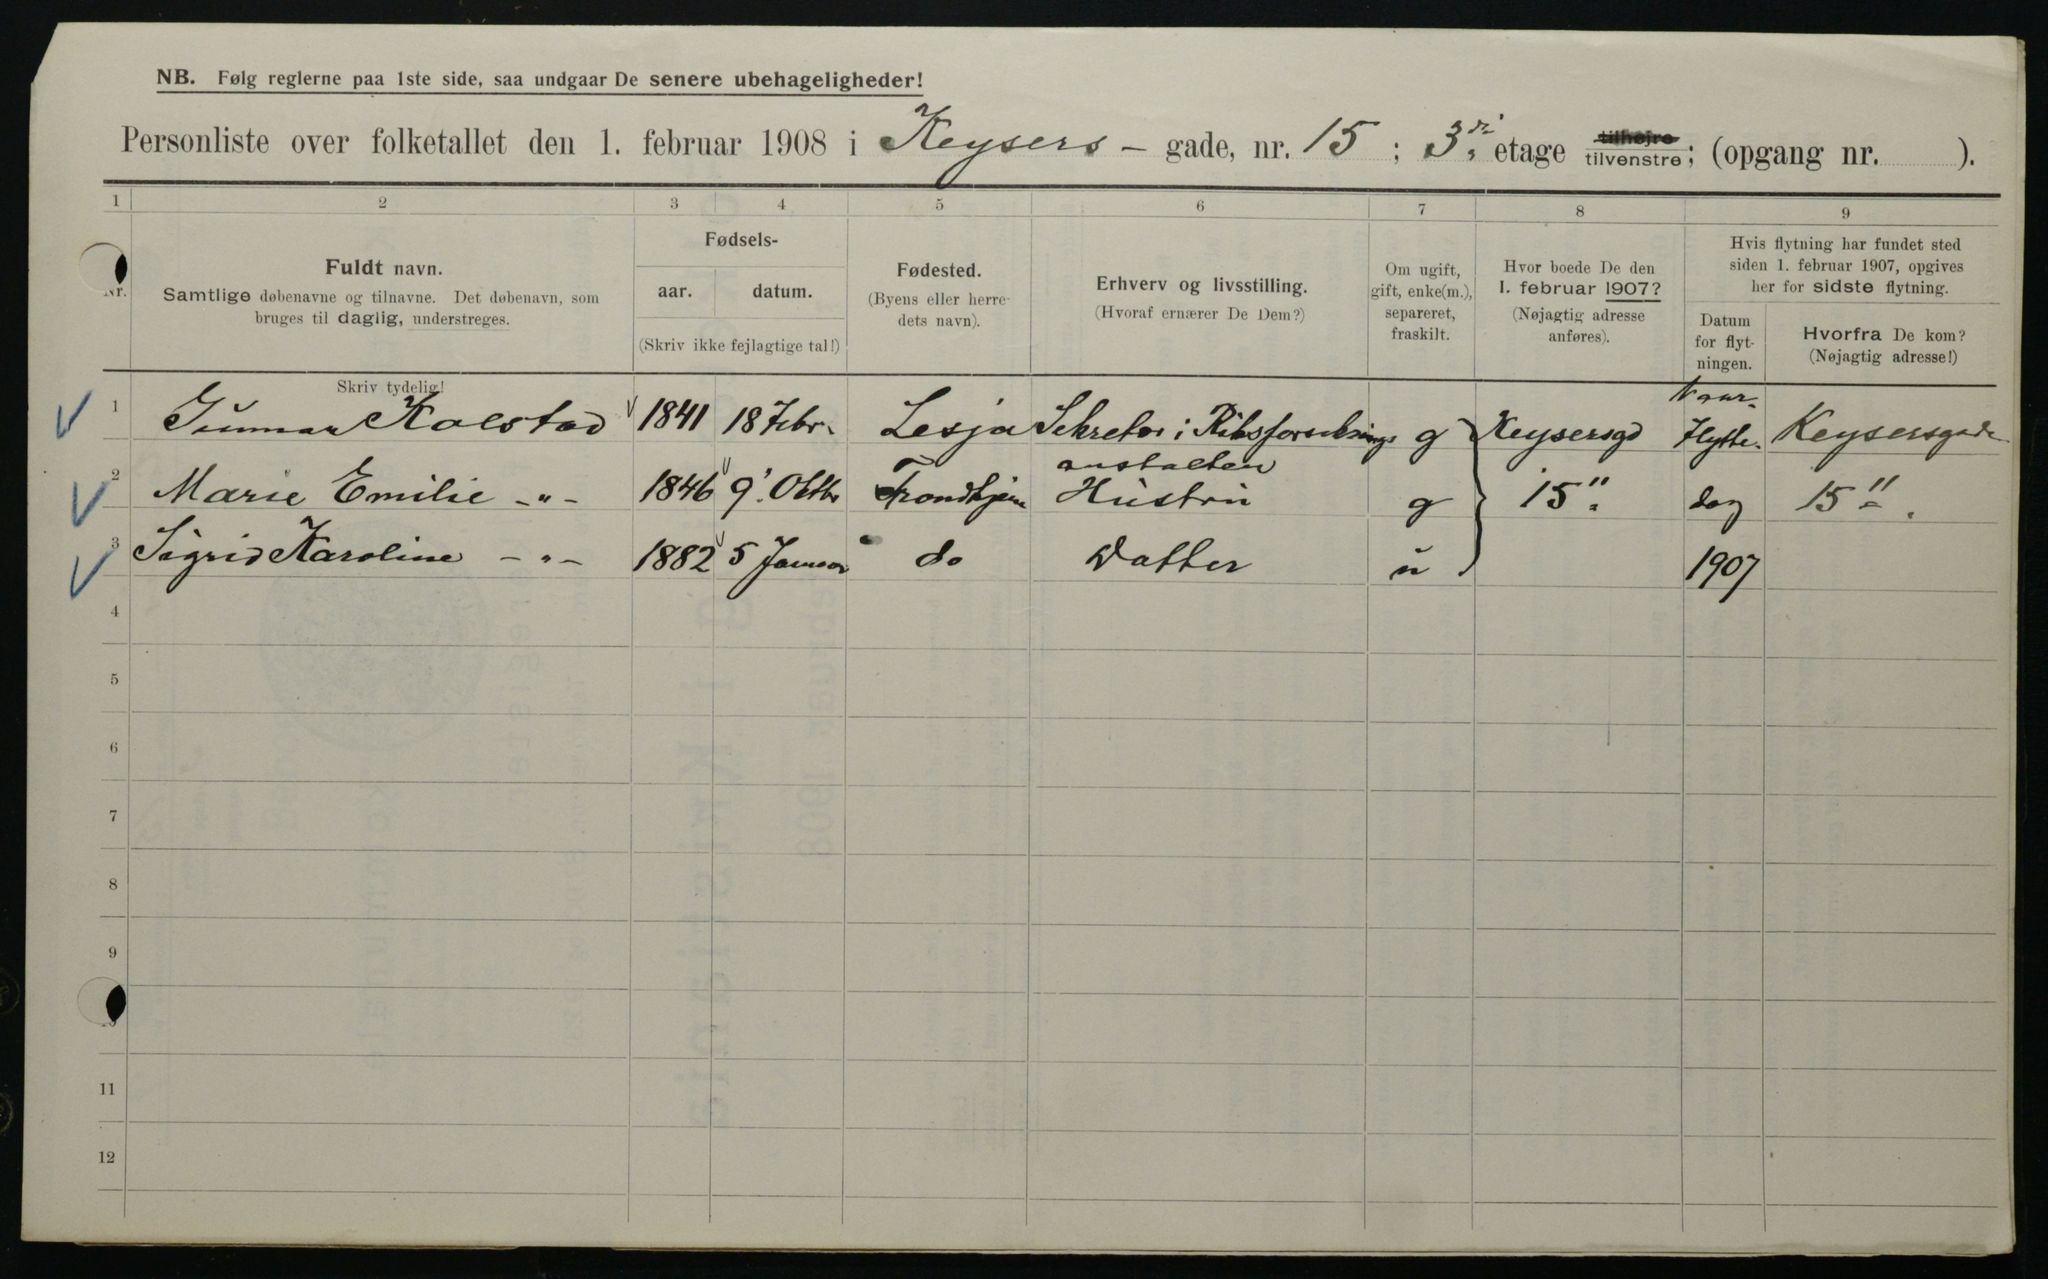 NB. Følg reglerne paa 1ste side, saa undgaar De senere ubehageligheder!
Personliste over folketallet den 1. februar 1908 i Keysers - gade, nr. 15 ; 3di etage tilhøjre tilvenstre; (opgang nr. ).
1 2 3 4 5 6 7 8 9
Nr.
Fuldt navn.
Samtlige døbenavne og tilnavne. Det døbenavn, som
bruges til daglig, understreges.
Skriv tydelig!
Fødsels-
aar. datum.
(Skriv ikke fejlagtige tal!)
Fødested.
(Byens eller herre-
dets navn).
Erhverv og livsstilling.
(Hvoraf ernærer De Dem?)
Om ugift,
gift, enke(m.),
separeret,
fraskilt.
Hvor boede De den
1. februar 1907?
(Nøjagtig adresse
anføres).
Hvis flytning har fundet sted
siden 1. februar 1907, opgives
her for sidste flytning.
Datum
for flyt-
ningen.
Hvorfra De kom?
(Nøjagtig adresse!)
1 Gunnar Kolstad 1841 18 Febr. Lesja Sekretær i Riksforsikrings anstalten g Keysersgd Vaar- flytte- Keysersgade
2 Marie Emilie -"- 1846 9. Oktbr Trondhjem Hustru g 15" dag 15"
3 Sigrid Karoline -"- 1882 5 Januar do Datter u 1907
4
5
6
7
8
9
10
11
12